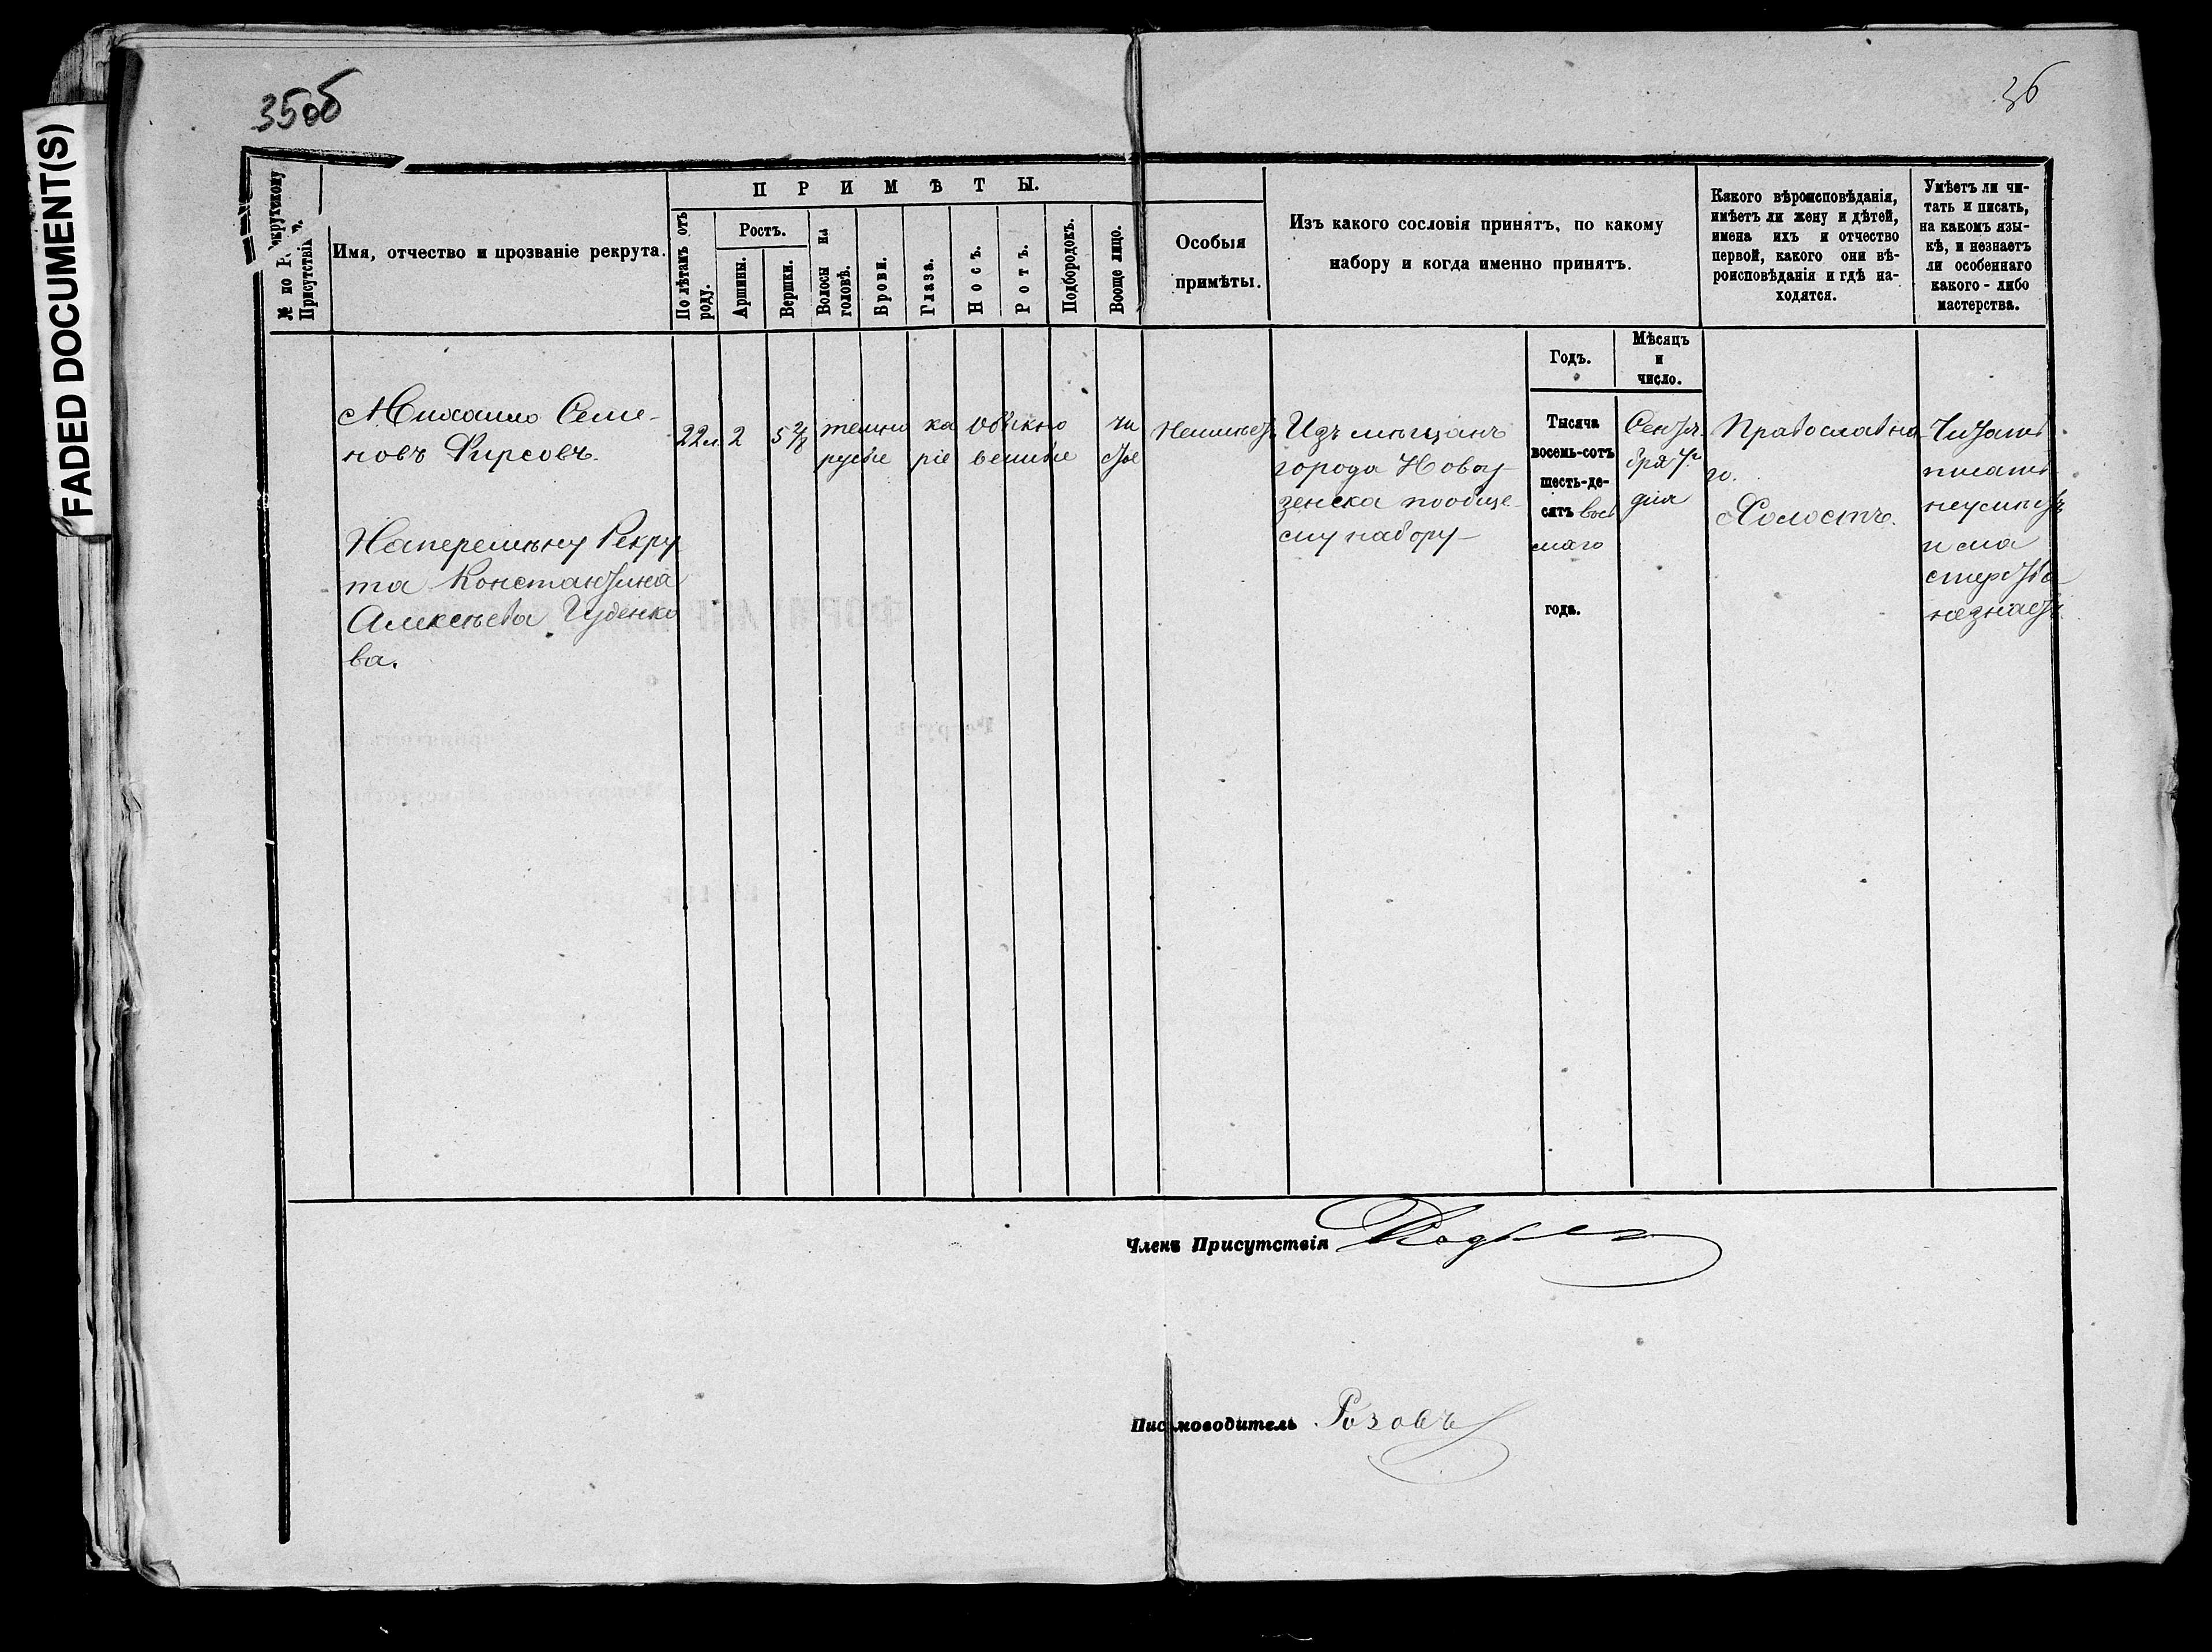 FADED DOCUMENT(S)
35об
36
№ по
Присутствія
Имя, отчество и прозваніе рекрута.
ПРИМѢТЫ.
По лѣтамъ отъ роду.
Ростъ.
Аршины.
Вершки.
Волосы на головѣ.
Брови.
Глаза.
Носъ.
Ротъ.
Подбородокъ.
Вооще лицо.
Особыя
примѣты.
Изъ какого сословія принятъ, по какому
набору и когда именно принятъ.
Какого вѣроисповѣданія,
имѣетъ ли жену и дѣтей,
имена ихъ и отчество
первой, какого они вѣ-
роисповѣданія и гдѣ на-
ходятся.
Умѣетъ ли чи-
тать и писать,
на какомъ язы-
кѣ, и незнаетъ
ли особеннаго
какого-либо
мастерства.
Михаило Семе-
новъ Фирсовъ.
Наперемѣну Рекру
та Константина
Алексѣева Гуденко
ва.
22 л.
2
5 2/8
темно
русые
ка
ріе
Обыкно
венные
чи
стое
Неимѣетъ
Изъ мѣщанъ
города Новоу
зенска пообще
му набору
Годъ.
Тысяча
восемь-сотъ
шесть-де-
сятъ вось
маго
года.
Мѣсяцъ
и
число.
Сентя-
бря 7го
дня
Православна
го.
Холостъ.
Читать
писать
неумѣетъ
и ма
стерства
незнаетъ
Членъ Присутствія
Письмоводитель Розовъ